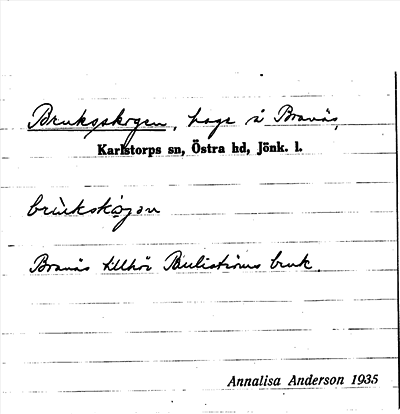 Bruksskogen, hage å Branäs,
Karlstorps sn, Östra hd, Jönk. l.
brùkskọgən
Branäs tillhör Pauliströms bruk.
Annalisa Anderson 1935